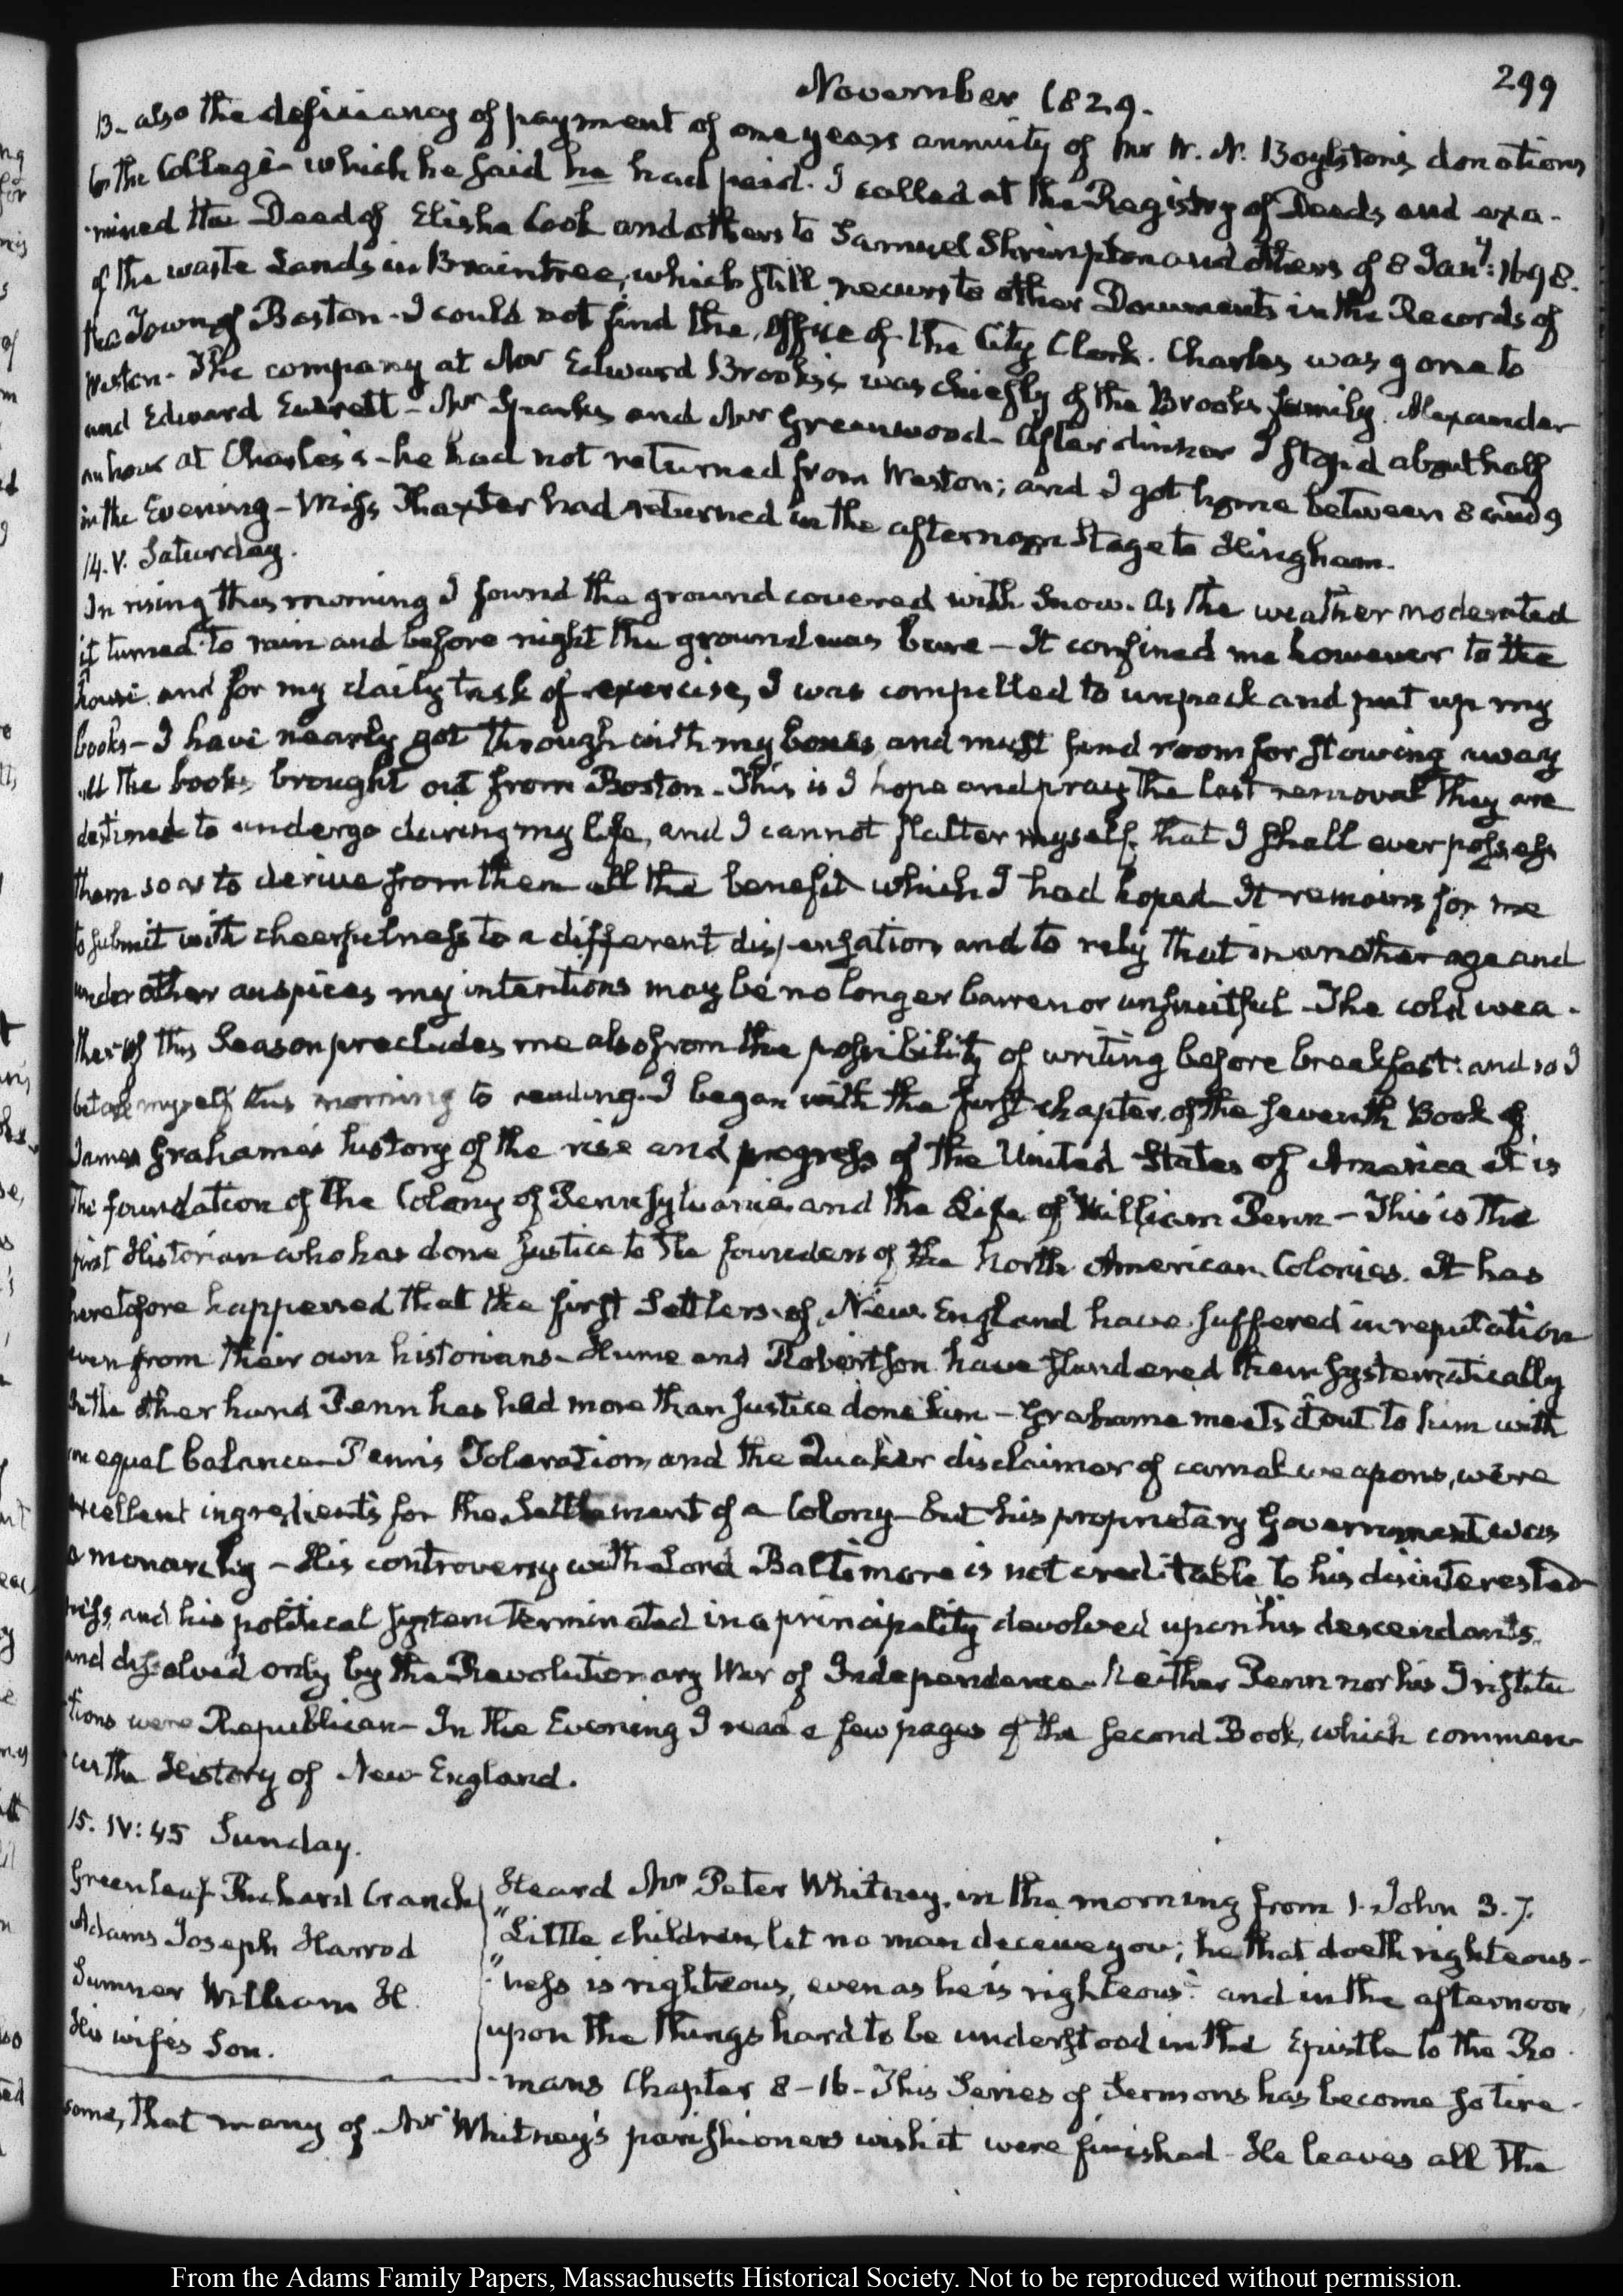 299
November 1829.
13- also the deficiency of payment of one years annuity of Mr W. N. Boylston's donations
to the College- which he said he had paid. I called at the Registry of Deeds and exa-
-mined the Deed of Elisha Cook and others to Samuel Shrimpton and others of 8 Jany: 1698.
of the waste Lands in Braintree, which still recurs to other Documents in the Records of
the Town of Boston- I could not find the Office of the City Clerk. Charles was gone to
Weston- The company at Mr Edward Brooks's was chiefly of the Brooks family. Alexander
and Edward Everett- Mr Sparks and Mr Greenwood- After dinner I stop'd about half
an hour at Charles's- he had not returned from Weston; and I got home between 8 and 9
in the Evening- Miss Thaxter had returned in the afternoon Stage to Hingham.
14. V. Saturday.
In rising this morning I found the ground covered with Snow. As the weather moderated
it turned to rain and before night the ground was bare- It confined me however to the
house. and for my daily task of exercise, I was compelled to unpack and put up my
books- I have nearly got through with my boxes and must find room for stowing away
all the books brought out from Boston- This is I hope and pray the last removal they are
destined to undergo during my life, and I cannot flatter myself that I shall ever possess
them so as to derive from them all the benefit which I had hoped- It remains for me
to submit with cheerfulness to a different dispensation, and to rely that in another age and
under other auspices my intentions may be no longer barren or unfruitful- The cold wea-
ther of this Season precludes me also from the possibility of writing before breakfast: and so I
betook myself this morning to reading- I began with the first chapter of the seventh Book of
James Grahame's history of the rise and progress of the United States of America It is
the foundation of the Colony of Pennsylvania and the Life of William Penn- This is the
first Historian who has done justice to the founders of the North American Colonies. It has
heretofore happened that the first Settlers of New England have suffered in reputation
even from their own historians- Hume and Robertson have slandered them systematically
On the other hand Penn has had more than justice done him- Grahame meets it out to him with
an equal balance- Penn's Toleration, and the Quaker disclaimer of carnal weapons, were
excellent ingredients for the settlement of a Colony- but his proprietary Government was
a monarchy- His controversy with Lord Baltimore is not creditable to his disinterested-
ness, and his political system terminated in a principality devolved upon his descendants.
and dissolved only by the Revolutionary War of Independence- Neither Penn nor his Institu
tions were Republican- In the Evening I read a few pages of the second Book, which commen-
ces the History of New-England.
15. IV: 45 Sunday.
Greenleaf Richard Cranch
Adams Joseph Harrod
Sumner William H.
His wife's Son.
Heard Mr Peter Whitney, in the morning from 1. John 3. 7.
"Little children, let no man deceive you; he that doeth righteous-
"ness is righteous, even as he is righteous" and in the afternoon,
upon the things hard to be understood in the Epistle to the Ro-
-mans Chapter 8-16- This Series of Sermons has become so tire-
some, that many of Mr Whitney's parishioners wish it were finished- He leaves all the
From the Adams Family Papers, Massachusetts Historical Society. Not to be reproduced without permission.